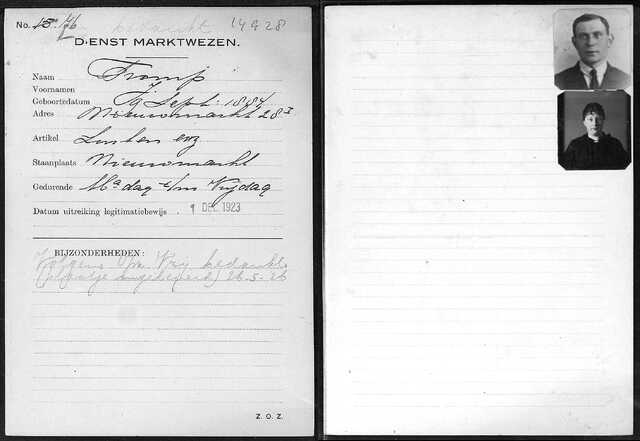 No. 15 76 bedankt 14928
DIENST MARKTWEZEN.
Naam Tromp
Voornamen J
Geboortedatum 19 Sept. 1884
Adres Nieuwmarkt 28 I
Artikel Lusten enz
Staanplaats Nieuwmarkt
Gedurende Ma dag t/m Vrijdag
Datum uitreiking legitimatiebewijs . 1 DEC. 1923
BIJZONDERHEDEN:
Volgens bedankt
(plaatje ingeleverd) 26-5-26
Z. O. Z.